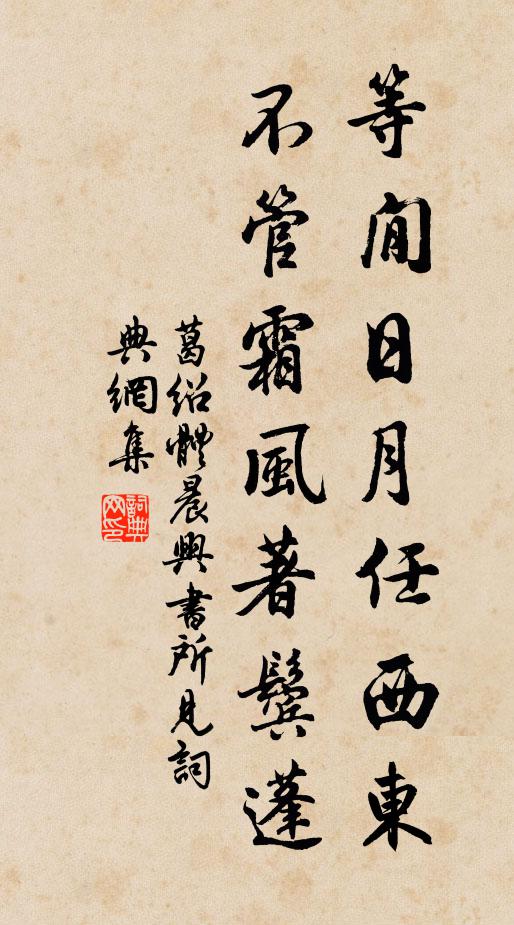 等閒日月任西東
不管霜風著鬢蓬
葛紹體晨興書所見詞
典網集
詞典網印